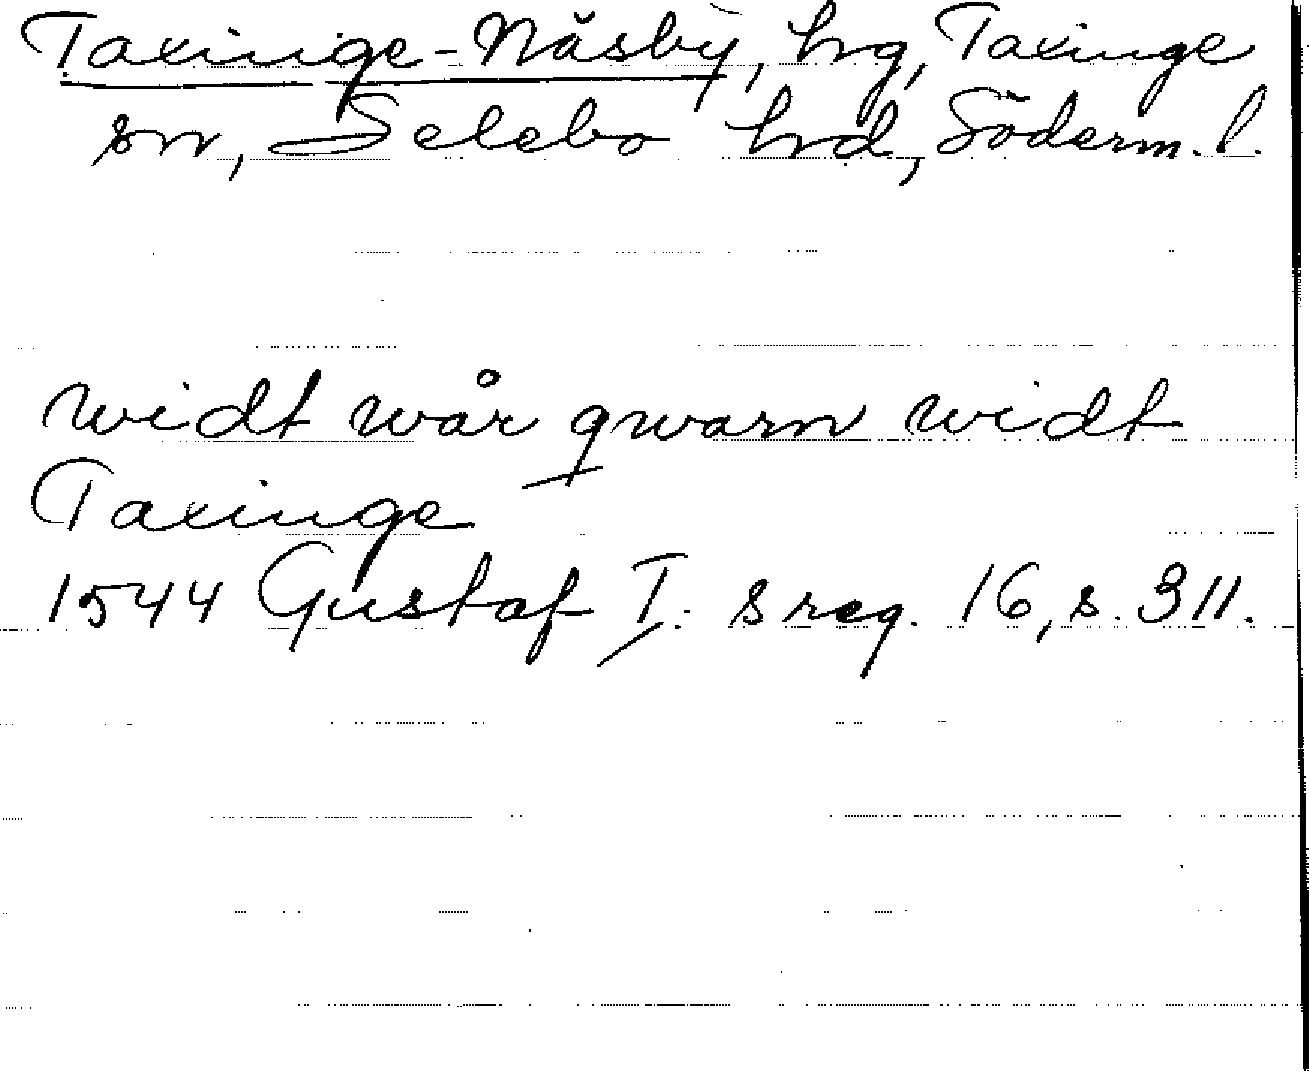 Taxinge-Näsby, hg, Taxinge
sn, Selebo hd, Söderm. l.
widt wår qwarn widt
Taxinge
1544 Gustaf I:s reg. 16, s. 311.